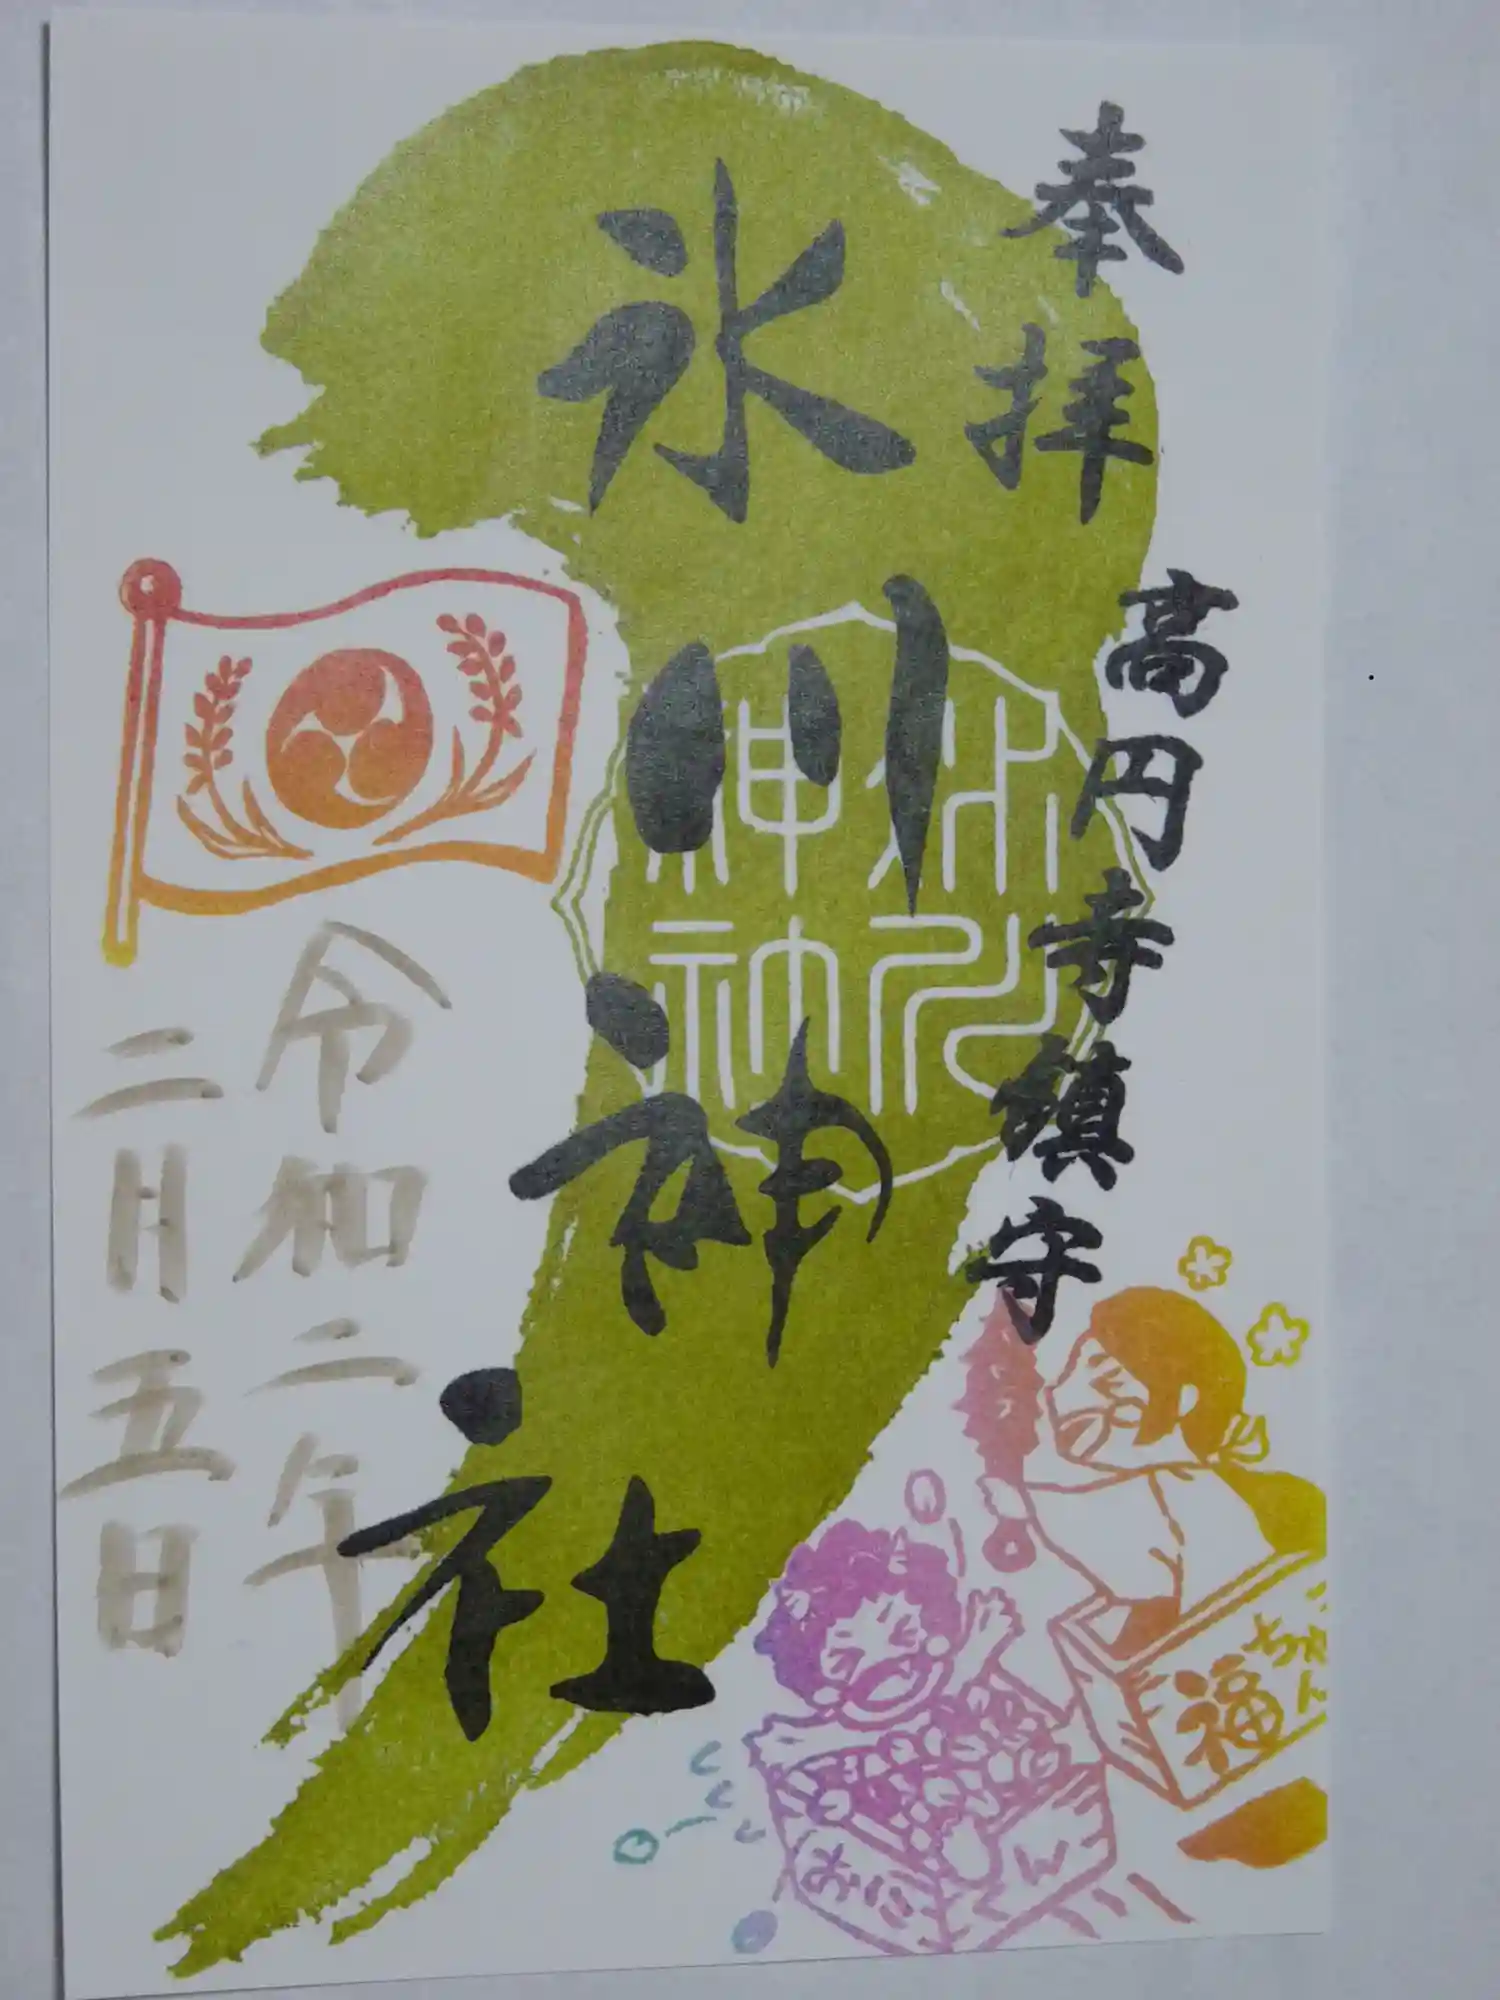 奉拝
高円寺鎮守
氷川神社
氷川
神社
令和二年
二月五日
福
ちゃん
おに